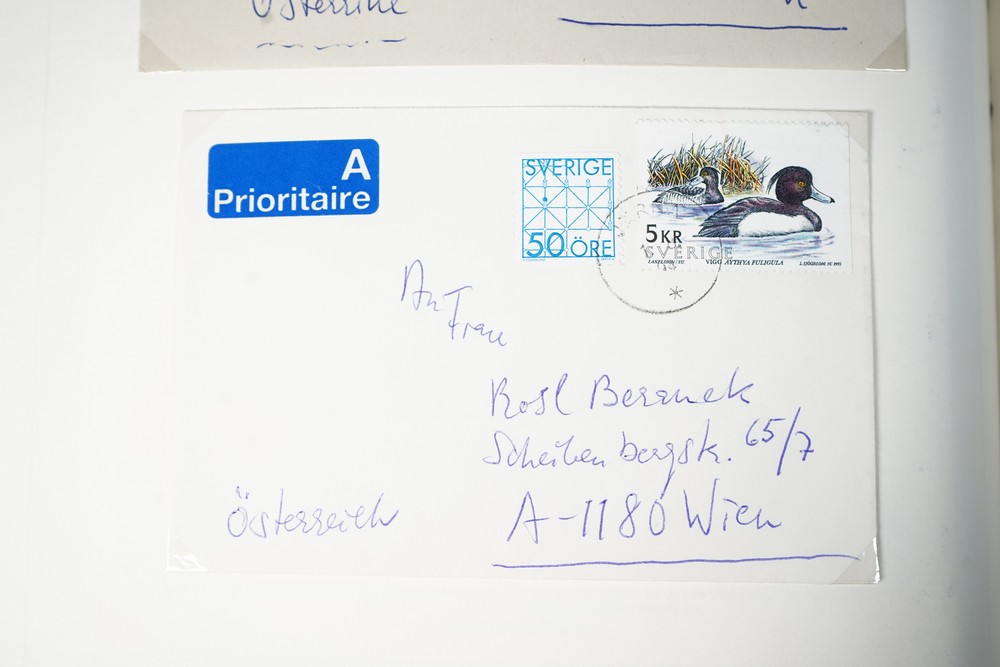 Österreich
A
Prioritaire
SVERIGE
50 ÖRE
5 KR
SVERIGE
VIGG AYTHYA FULIGULA
An
Frau
Rosl Beranek
Scheibenbergstr. 65/7
A-1180 Wien
Österreich